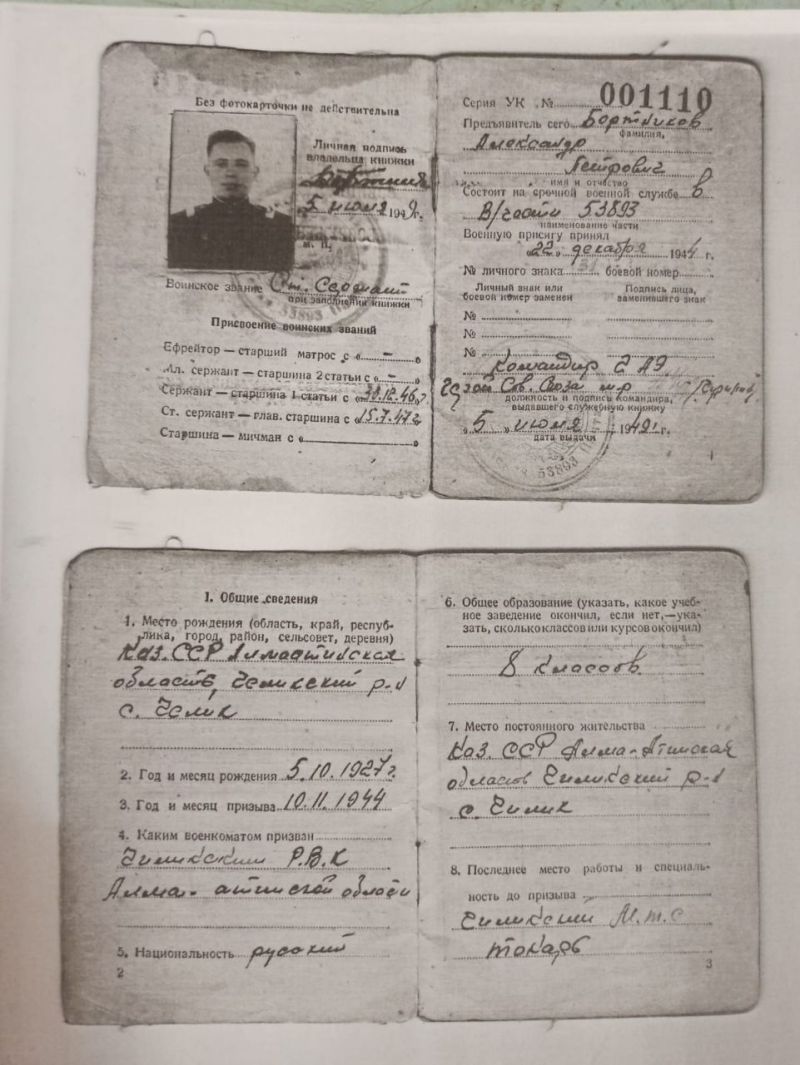 Без фотокарточки не действительна
Личная подпись
владельца книжки
5 июля 1949г.
М. П.
Воинское звание Ст. Сержант
при заполнении книжки
Присвоение воинских званий
Ефрейтор — старший матрос с « — »
Мл. сержант — старшина 2 статьи с « — »
Сержант — старшина 1 статьи с «30.12.46г»
Ст. сержант — глав. старшина с «15.7.47г
Старшина — мичман с « »
Серия УК № 001110
Предъявитель сего Бортников
фамилия,
Александр
Петрович
имя и отчество
Состоит на срочной военной службе в
В/части 53893
наименование части
Военную присягу принял
«22» декабря 1944 г.
№ личного знака боевой номер
Личный знак или
боевой номер заменен
Подпись лица,
заменившего знак
№
№
№
Командир 2 АЭ
Сов. Союза м-р
должность и подпись командира,
выдавшего служебную книжку
«5» июля 1949г.
дата выдачи
53893
1
I. Общие сведения
1. Место рождения (область, край, респуб-
лика, город, район, сельсовет, деревня)
Каз. ССР Алмаатинская
область, Чиликский р-н
с. Чилик
2. Год и месяц рождения 5.10.1927г.
3. Год и месяц призыва 10.11.1944
4. Каким военкоматом призван
Чиликским Р.В.К
Алма-атинской области
5. Национальность русский
2
6. Общее образование (указать, какое учеб-
ное заведение окончил, если нет,—ука-
зать, сколько классов или курсов окончил)
8 классов
7. Место постоянного жительства
Каз. ССР Алма-Атинская
область Чиликский р-н
с. Чилик
8. Последнее место работы и специаль-
ность до призыва
Чиликский М.т.с
токарь
3